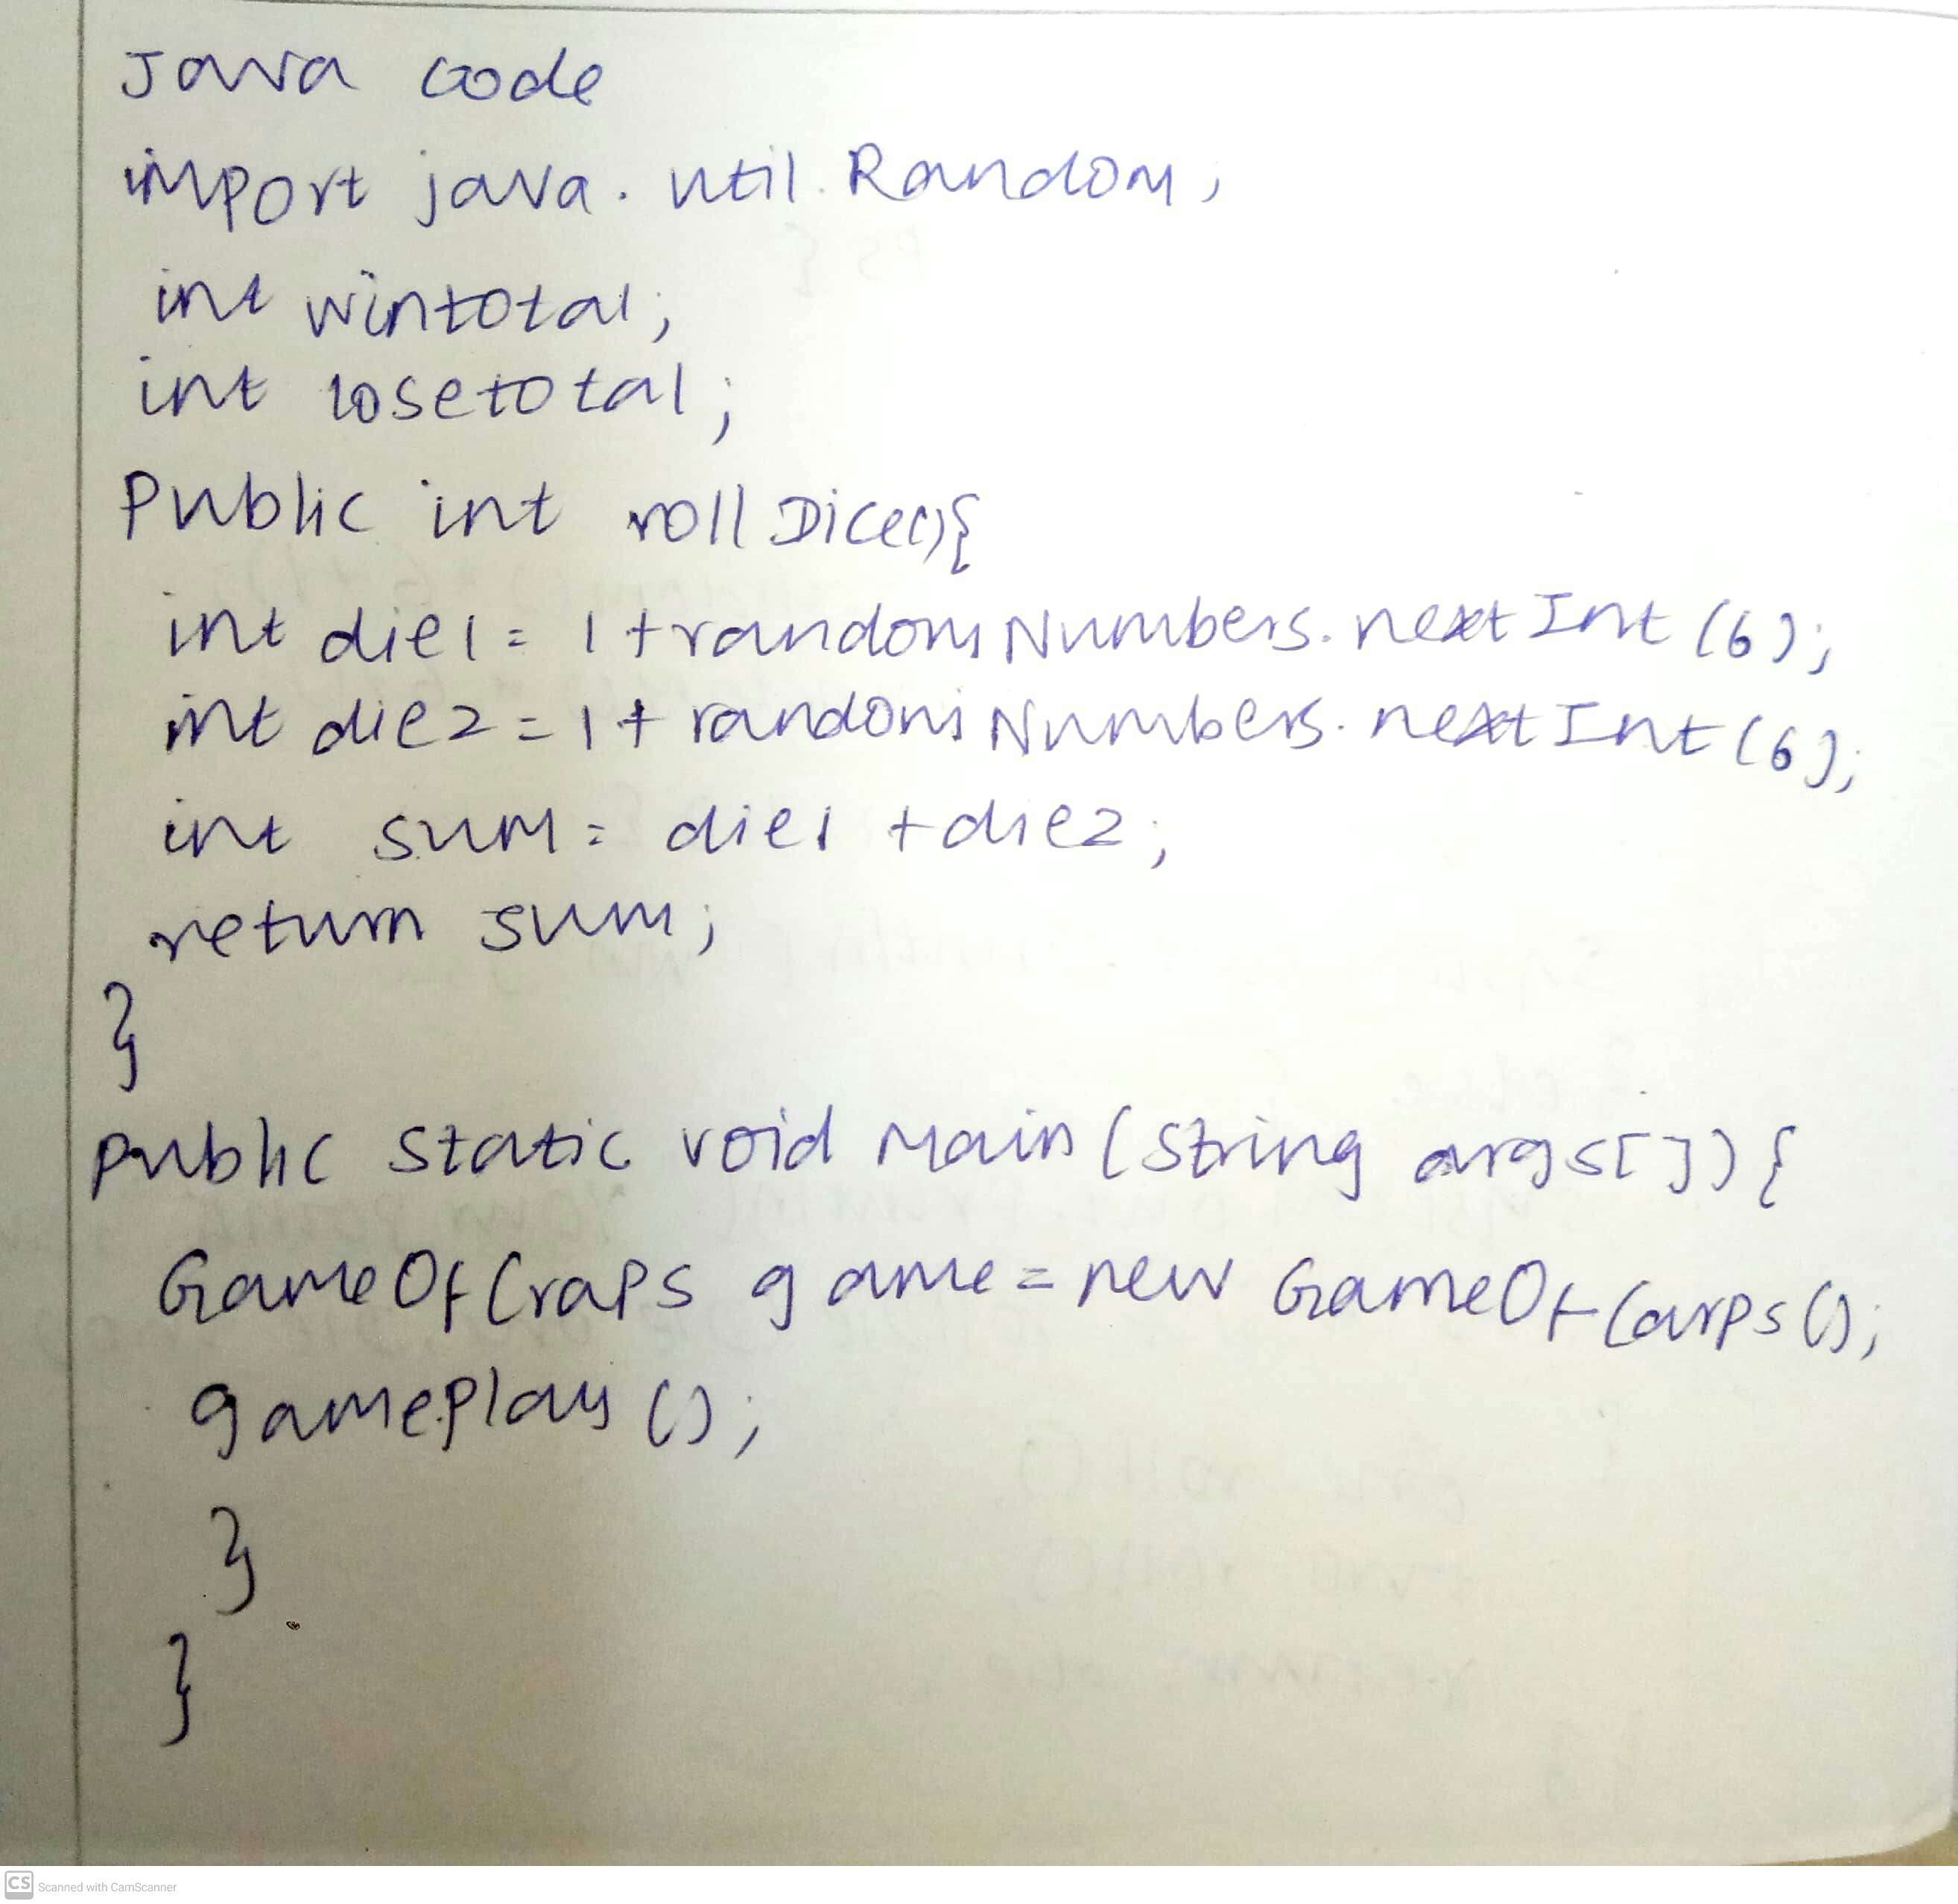 Java code
import java.util.Random;
int wintotal;
int losetotal;
Public int rollDice(){
int die1 = 1+randomNumbers.nextInt(6);
int die2 = 1+ randomNumbers.nextInt(6);
int sum = die1 +die2;
return sum;
}
public static void main(String args[]){
GameOfCraps game = new GameOfCarps();
game.play();
}
}
CS Scanned with CamScanner